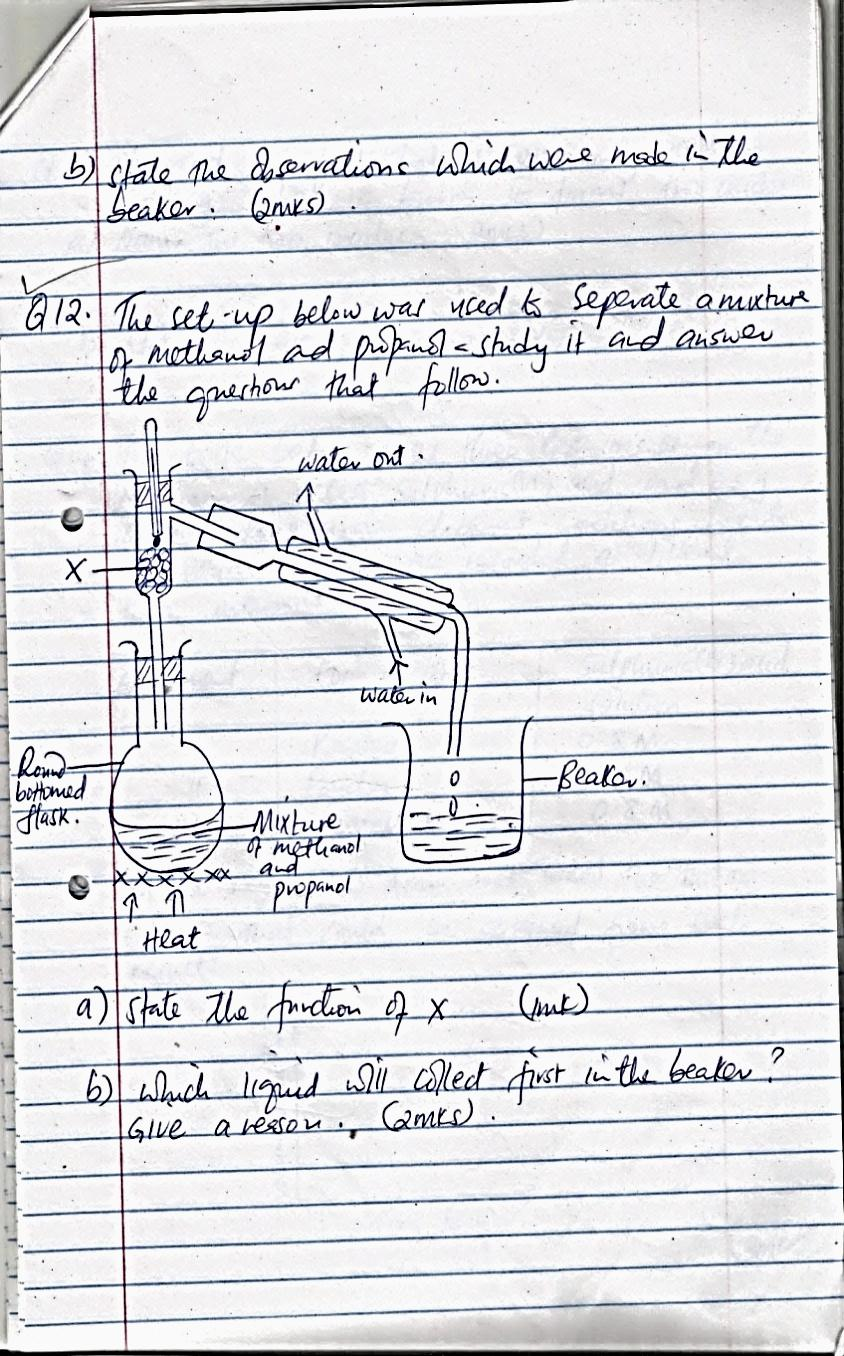 b) state the observations which were made in the
beaker. (2mks).
Q12. The set-up below was used to seperate a mixture
of methanol ad propanol - study it and answer
the questions that follow.
water out.
X
water in
Round
bottomed
flask.
Beaker.
Mixture
of methanol
and
propanol
Heat
a) state the function of X (1mk)
b) which liquid will collect first in the beaker?
Give a reason. (2mks).